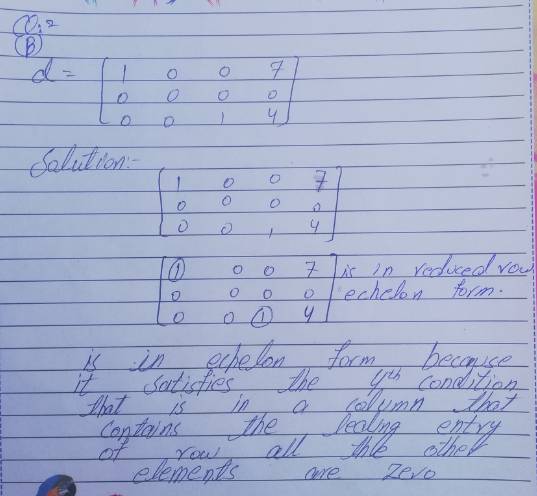 Q.2
(B)
d = [ 1 0 0 7
0 0 0 0
0 0 1 4 ]
Solution:-
[ 1 0 0 7
0 0 0 0
0 0 1 4 ]
[ ① 0 0 7 ] is in reduced row
0 0 0 0 echelon form.
0 0 ① 4
is in echelon form because
it satisfies the 4th condition
that is in a column that
contains the leading entry
of row all the other
elements are zero